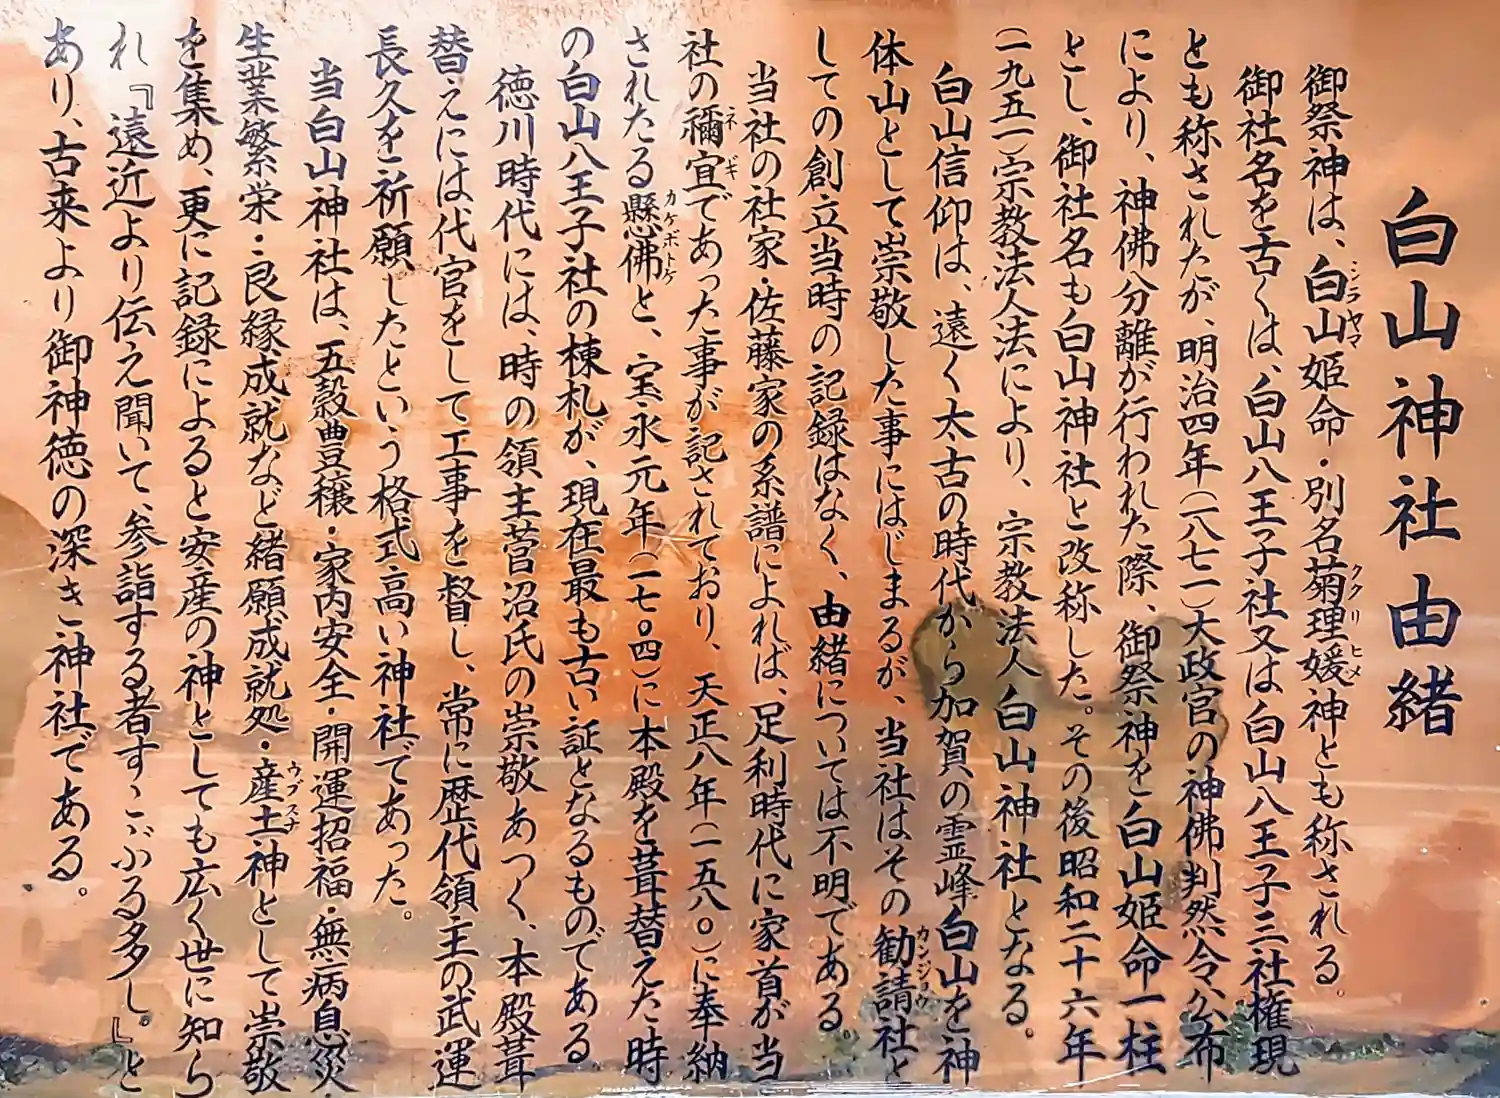 白山神社由緒
御祭神は、白山姫命・別名菊理媛神とも称される。
シラヤマ
ククリヒメ
御社名を古くは、白山八王子社又は白山八王子三社権現
とも称されたが、明治四年(一八七一)大政官の神佛判然令公布
により、神佛分離が行われた際、御祭神を白山姫命一柱
とし、御社名も白山神社と改称した。その後昭和二十六年
(一九五一)宗教法人法により、宗教法人白山神社となる。
白山信仰は、遠く太古の時代から加賀の霊峰白山を神
体山として崇敬した事にはじまるが、当社はその勧請社と
カンジョウ
しての創立当時の記録はなく、由緒については不明である。
当社の社家・佐藤家の系譜によれば、足利時代に家首が当
社の禰宜であった事が記されており、天正八年(一五八〇)に奉納
ネギ
されたる懸佛と、宝永元年(一七〇四)に本殿を葺替えた時
カケボトケ
の白山八王子社の棟札が、現在最も古い証となるものである
徳川時代には、時の領主菅沼氏の崇敬あつく、本殿葺
替えには代官をして工事を督し、常に歴代領主の武運
長久を祈願したという格式高い神社であった。
当白山神社は、五穀豊穣・家内安全・開運招福・無病息災・
生業繁栄・良縁成就など緒願成就処・産土神として崇敬
ウブスナ
を集め、更に記録によると安産の神としても広く世に知ら
れ『遠近より伝え聞いて、参詣する者すこぶる多し。』と
あり、古来より御神徳の深き神社である。